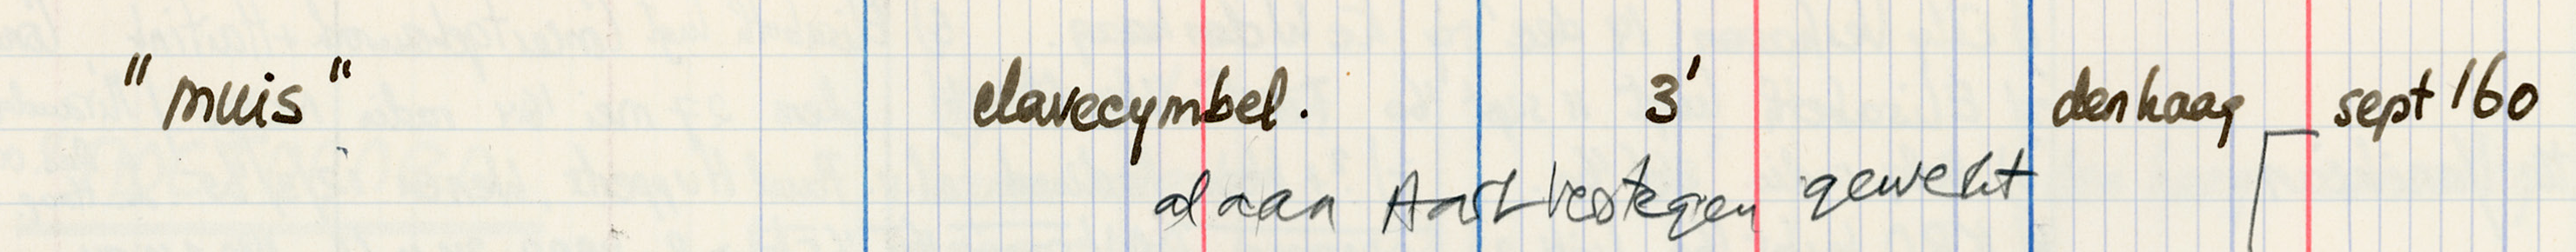 "muis" clavecymbel. 3' den haag sept '60
al aan Aart Verstegen gewekt